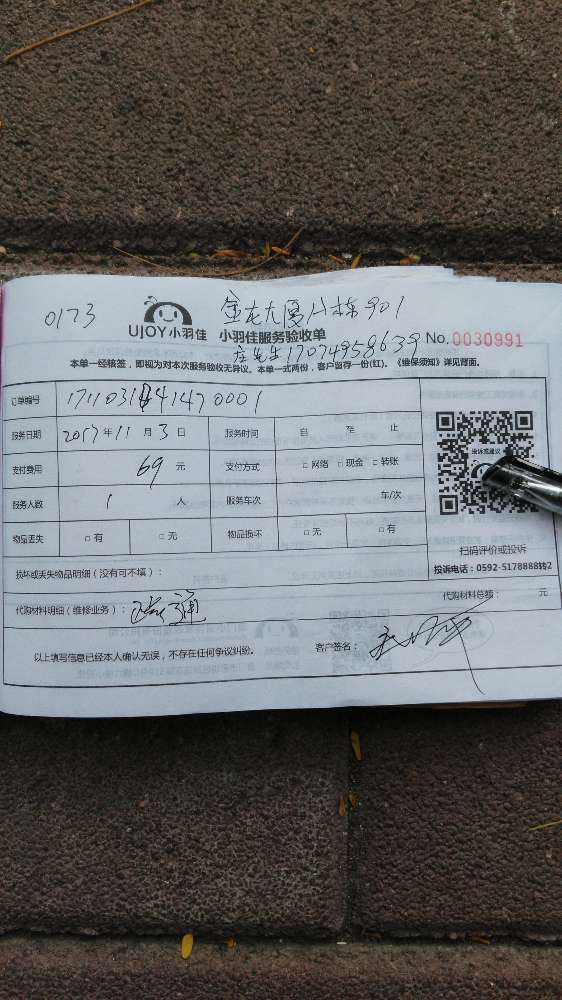 0173
金龙大厦A栋901
UJOY小羽佳 小羽佳服务验收单
庄先生17074958639 No.0030991
本单一经核签,即视为对本次服务验收无异议。本单一式两份,客户留存一份(红)。《维保须知》详见背面。
订单编号
服务日期 2017年11月3日 服务时间 自 至 止
支付费用 69元 支付方式 □网络 □现金 □转账
服务人数 1人 服务车次 车/次
物品丢失 □有 □无 物品损坏 □无 □有
投诉或建议
扫码评价或投诉
投诉电话:0592-5178888转2
损坏或丢失物品明细(没有可不填):
代购材料明细(维修业务): 疏通 代购材料总额: 元
以上填写信息已经本人确认无误,不存在任何争议纠纷。 客户签名: